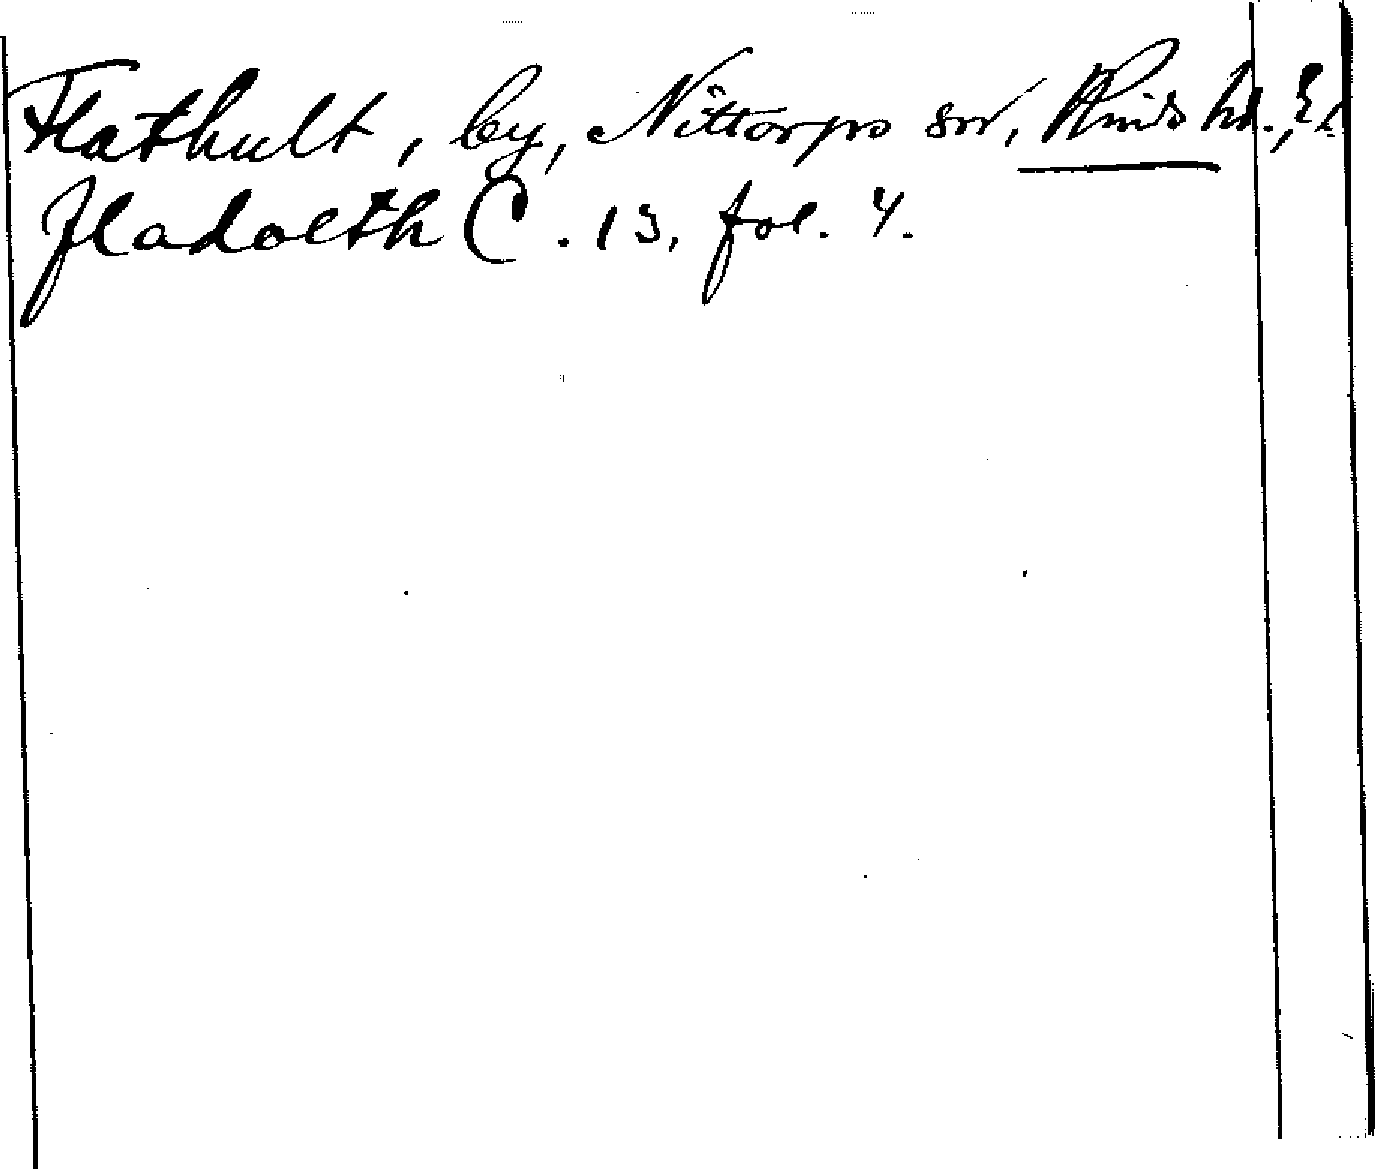 Flathult, by, Nittorps sn, Kinds hd., Äl
fladolth C. 13, fol. 4.